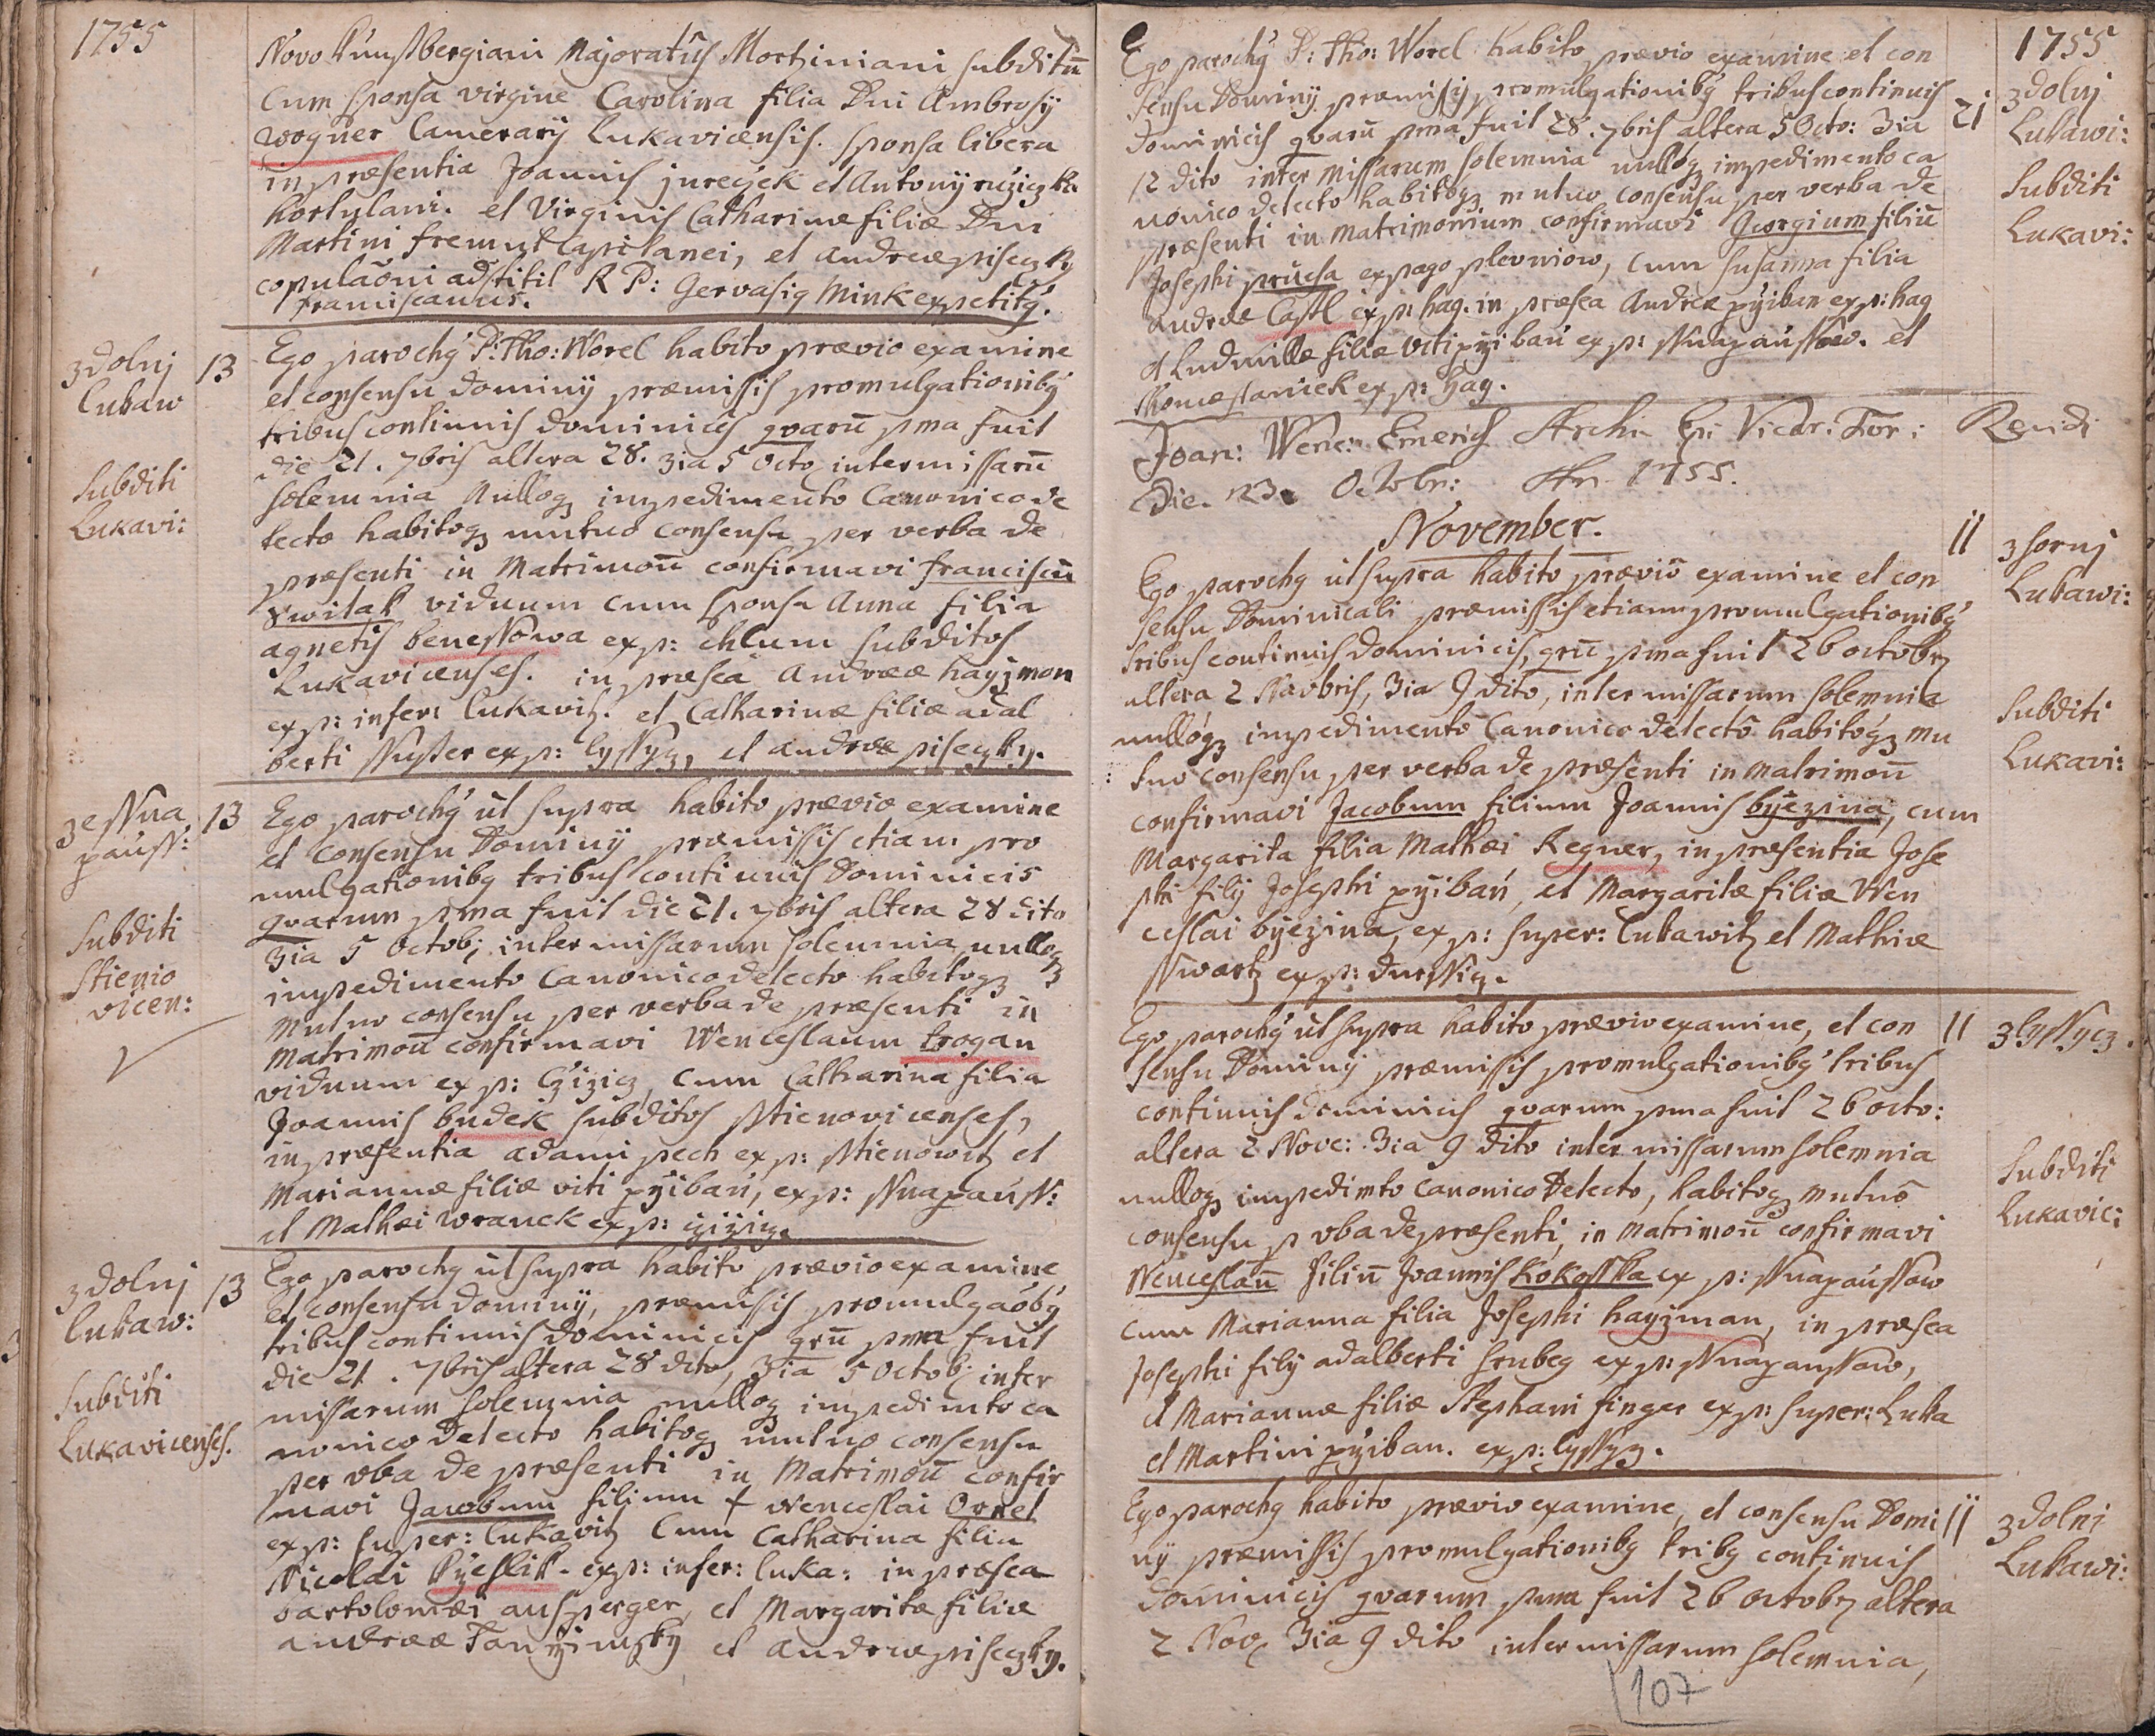 1755
Novo Künstbergiani Majoratûs Mortziniani subditũ
Cum sponsa virgine Carolina filia Dni Ambrosÿ
wogner Camerarÿ Lukavicensis. sponsa libera
in præsentia Joannis jurecjek et Antonÿ rúziczka
hortulani. et Virginis Catharinæ filiæ Dni
Martini fremut Capitanei, et andreæ pisecz ky
copulaõni adstitit R P: Gervasig Mink expetitg.
Franciscanus.
zdolnj
Lukaw
subditi
Lukavi:
13
Ego parochg P: Tho: Worel habito prævio examine
et consensu dominÿ præmissis promulgationibg
tribus continuis dominicis qvarũ pma fuit
die 21. 7bris altera 28. 3ia 5 Octo inter missarũ
solemnia nulloq impedimento Canonico de
tecto habitoq mutuo consensu per verba de
præsenti in Matrimoñ confirmavi franciscũ
Switak viduum cum sponsa Anna filia
agnetis benessowa ex p: chlum subditos
Lukavicenses. in præsea Andreæ hayzman
ex p: infer: Lukavitz. et Catharinæ filiæ adal
berti Nuster ex p: lyssyz, et andreæ pisegzky.
ze Nua
pauss:
subditi
Stieno
vicen:
13
Ego parochg ut supra habito prævio examine
et consensu Dominÿ præmissis etiam pro
mulgationibg tribus continuis Dominicis
qvarum pma fuit die 21. 7bris altera 28 dito
3ia 5 Octob; inter missarum solemnia nulloq
impedimento Canonico detecto habitoq
mutuo consensu per verba de præsenti in
matrimoñ confirmavi Wenceslaum trogan
viduum ex p: Czizicz, cum Catharina filia
Joannis budek subditos Stienovicenses,
in præsentia adami pech ex p: Stienowitz et
Mariannæ filiæ viti przibań, ex p: Nuapauss:
et Mathei wranek ex p:
zdolnj
Lukaw:
subditi
Lukavicenses.
13
Ego parochg ut supra habito prævio examine
et consensu dominÿ, præmissis promulgaõbg
tribus continuis dominicis qrũ pma fuit
die 21. 7bris altera 28 dito, 3ia 5 Octob; inter
missarum solemnia nulloq impedimto ca
nonico detecto habitoq mutuo consensu
per vba de præsenti in Matrimoñ confir
mavi Jacobum filium + wenceslai Ornet
ex p: super: Lukavitz cum Catharina filia
Nicolai kyeslik. ex p: infer: luka: in præsea
bartolomæi ausperger, et Margaritæ filiæ
andreæ et andreæ pisegzky.
1755
Ego parochg P: Tho: Worel habito prævio examine et con
sensu Dominÿ præmissis, promulgationibg tribus continuis
dominicis qvarũ pma fuit 28. 7bris altera 5 Octo: 3ia
12 dito inter missarum solemnia nulloq impedimento ca
nonico detecto habitoq mutuo consensu per verba de
præsenti in matrimonium confirmavi Georgium filiũ
Josephi prucha ex pago plevniow, cum susanna filia
andreæ Castl ex p: hag. in præsea Andreæ prziban ex p: hag
et Ludmillæ filiæ viti przibań ex p: Nuapaussow. et
Thomæ staniek ex p: hag.
21
zdolnj
Lukawi:
subditi
Lukavi:
Joan: Wenc: Emerich Archi Epi Vicar: For: Revidi
Die. 23. Octobr: An 1755.
November.
Ego parochg ut supra habito prævio examine et con
sensu Dominicali præmissis etiam promulgationibg
tribus continuis dominicis, qrũ pma fuit 26 octobr
altera 2 Novbris, 3ia 9 dito, inter missarum solemnia
nulloq impedimento Canonico detecto habitoq mu
tuo consensu per verba de præsenti in matrimoñ
confirmavi Jacobum filium Joannis byezina, cum
Margarita filia Mathæi Regner, in præsentia Jose
phi filÿ Josephi przibań, et Margaritæ filiæ Wen
ceslai byezina, ex p: super: Lukawitz et Mathiæ
Swartz ex p:
11
zhornj
Lukawi:
subditi
Lukavi:
Ego parochg ut supra habito prævio examine, et con
sensu Dominÿ præmissis promulgationibg tribus
continuis dominicis qvarum pma fuit 26 octo:
altera 2 Nove: 3ia 9 dito inter missarum solemnia
nulloq impedimto canonico Detecto, habitoq mutuo
consensu p vba de præsenti, in matrimoñ confirmavi
Wenceslaũ filiũ Joannis Kokosska ex p: Nuapaussow
cum Marianna filia Josephi hayzman, in præsea
Josephi filÿ adalberti hrubeg ex p: Nuapaussow,
et Mariannæ filiæ Stephani finger ex p: super: Luka
et Martini prziban. ex p: lyssyz.
11
zlyssycz.
subditi
Lukavic:
Ego parochg habito prævio examine, et consensu Domi
nÿ præmissis promulgationibg tribg continuis
dominicis qvarum pma fuit 26 octobr altera
2 Nov 3ia 9 dito inter missarum solemnia,
11
zdolni
Lukawi:
107